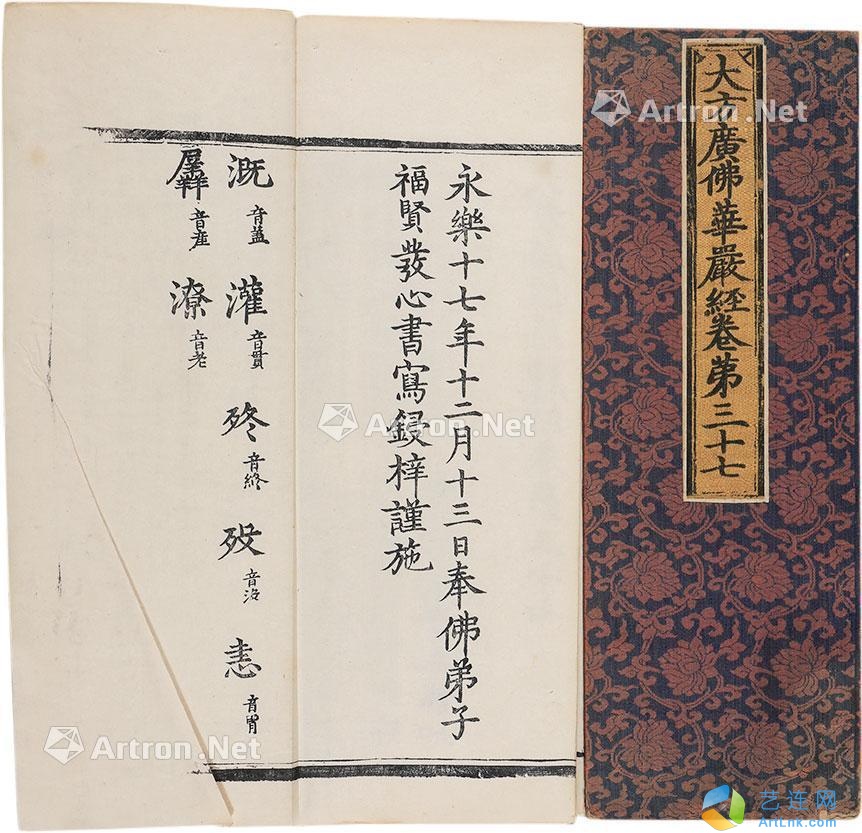 大方廣佛華嚴經卷第三十七
永樂十七年十二月十三日奉佛弟子
福賢發心書寫鋟梓謹施
溉 音蓋 灌 音貫 終 音終 歿 音沒 恚 音胃
羼 音産 潦 音老
Artron.Net
Artron.Net
Artron.Net
艺连网
ArtLnk.com